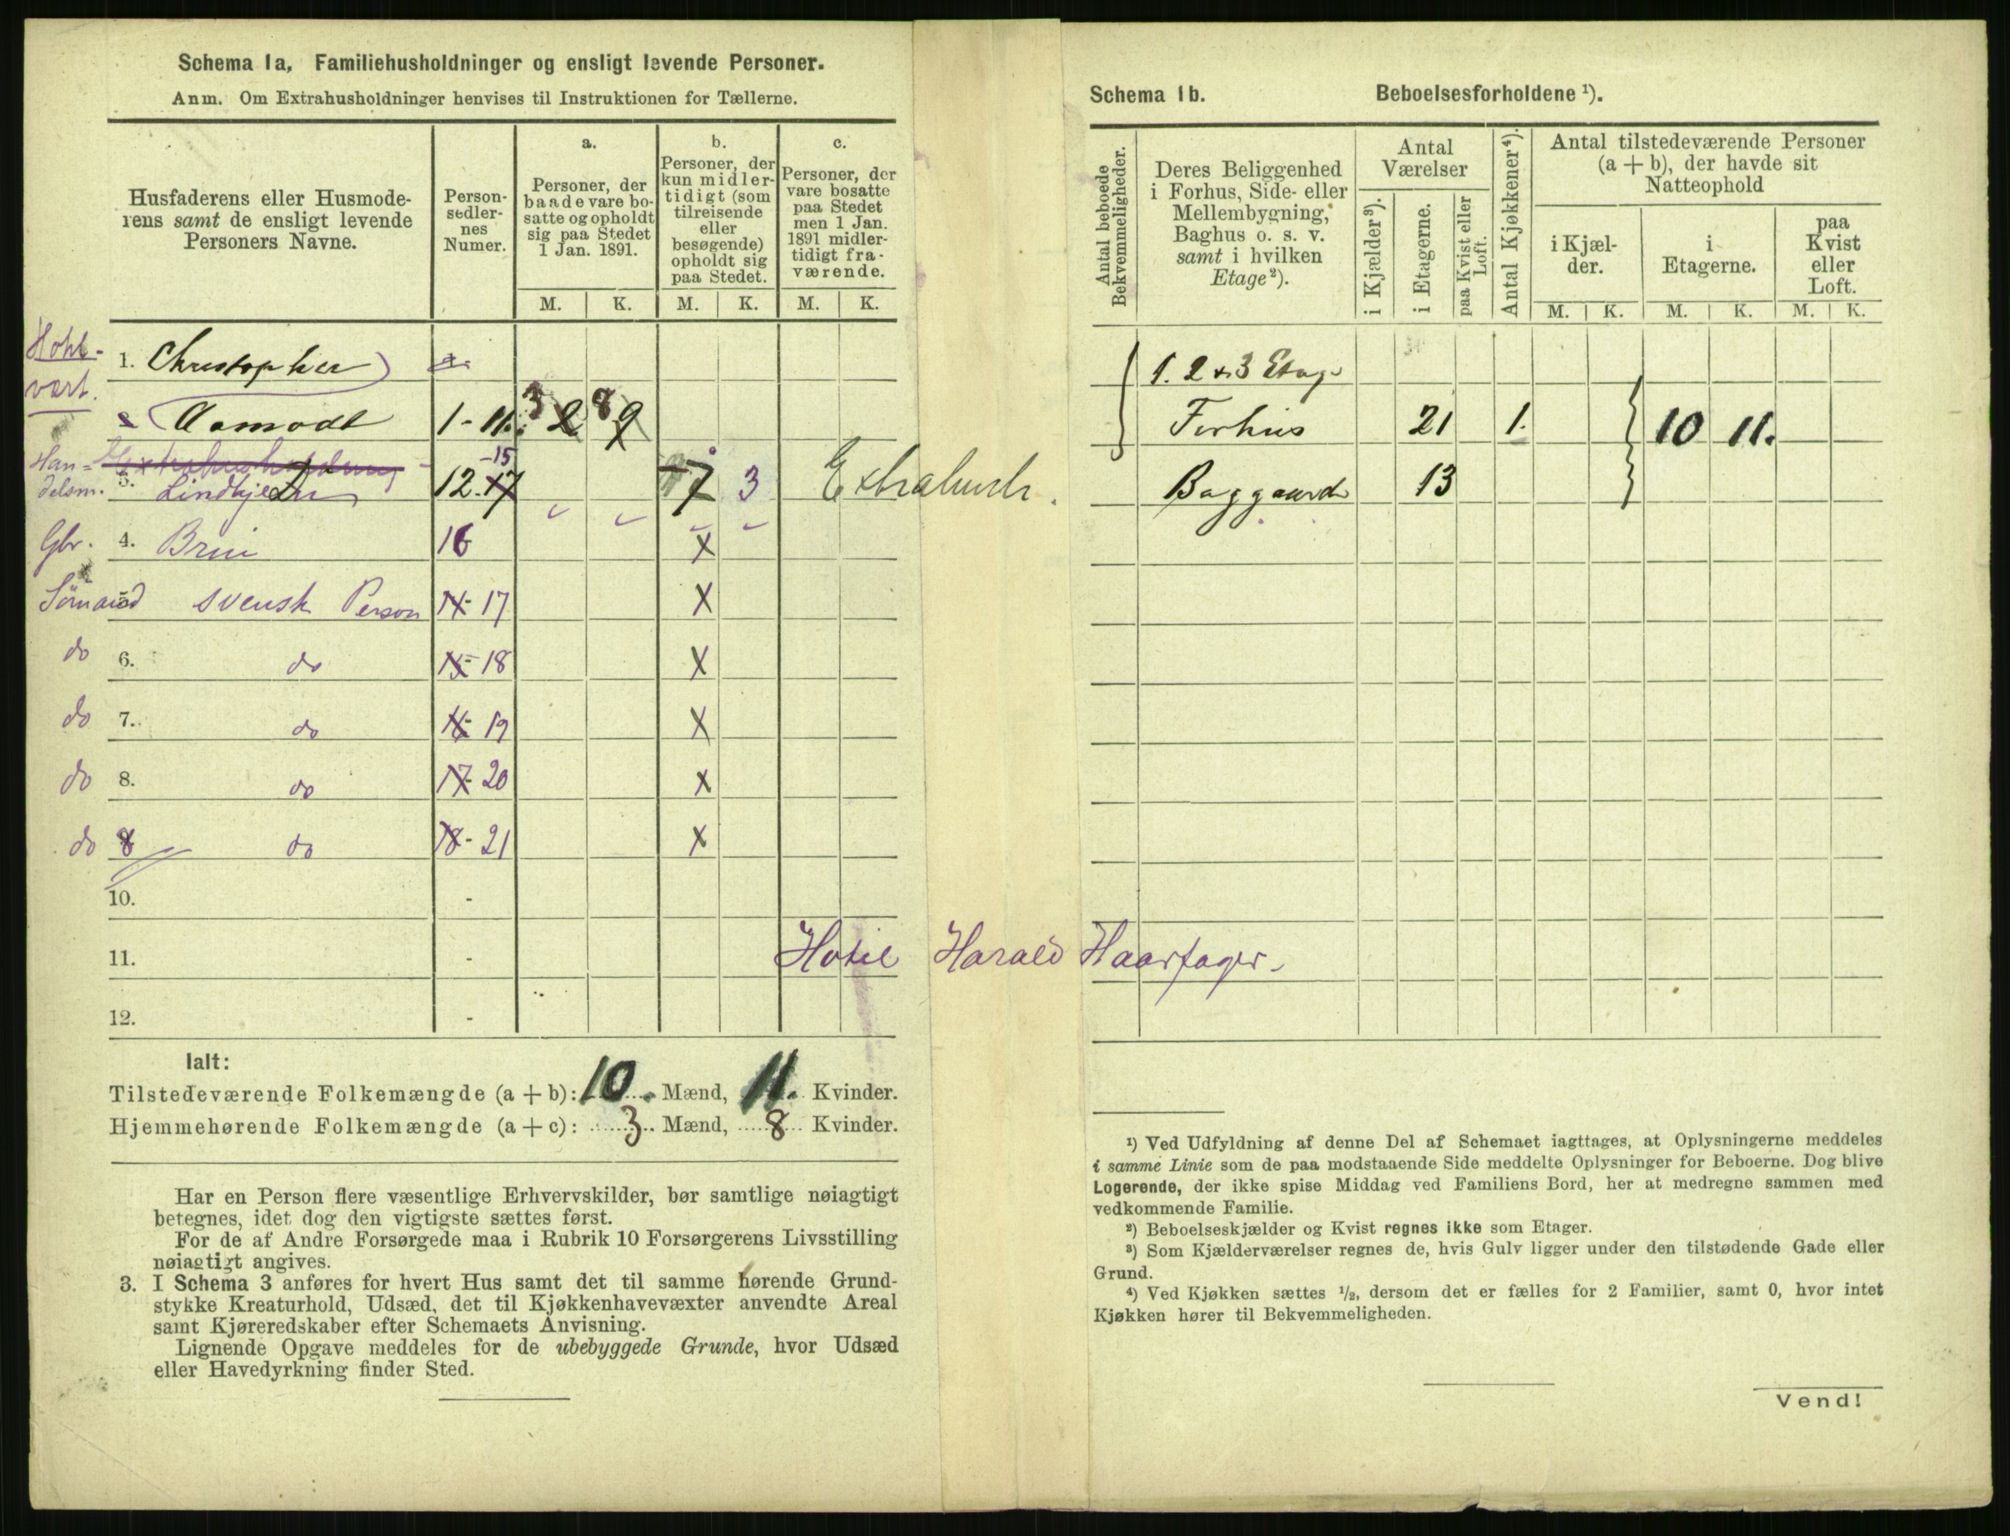 Schema 1a, Familiehusholdninger og ensligt levende Personer.
Anm. Om Extrahusholdninger henvises til Instruktionen for Tællerne.
Husfaderens eller Husmode-
rens samt de ensligt levende
Personers Navne.
Person-
sedler-
nes
Numer.
a.
Personer, der
baade vare bo-
satte og opholdt
sig paa Stedet
1 Jan. 1891.
b.
Personer, der
kun midler-
tidigt (som
tilreisende
eller
besøgende)
opholdt sig
paa Stedet.
c.
Personer, der
vare bosatte
paa Stedet
men 1 Jan.
1891 midler-
tidigt fra-
værende.
M. K. M. K. M. K.
1. Christopher
vært.
Aamodt 1-11. 3 2 8 9
Han-
delsm. 3. Lindkjenn 12-17 -15 7 3 Extrahush.
Gbr. 4. Brui 16 X
Sømand 5 svensk Person 14-17 X
do 6. do 15-18 X
do 7. do 16-19 X
do 8. do 17-20 X
do 9 do 18-21 X
10. -
11. - Hotel Harald Haarfager.
12. -
Ialt:
Tilstedeværende Folkemængde (a + b): 10. Mænd, 11. Kvinder.
Hjemmehørende Folkemængde (a + c): 3 Mænd, 8 Kvinder.
Har en Person flere væsentlige Erhvervskilder, bør samtlige nøiagtigt
betegnes, idet dog den vigtigste sættes først.
For de af Andre Forsørgede maa i Rubrik 10 Forsørgerens Livsstilling
nøiagtigt angives.
3. I Schema 3 anføres for hvert Hus samt det til samme hørende Grund-
stykke Kreaturhold, Udsæd, det til Kjøkkenhavevæxter anvendte Areal
samt Kjøreredskaber efter Schemaets Anvisning.
Lignende Opgave meddeles for de ubebyggede Grunde, hvor Udsæd
eller Havedyrkning finder Sted.
Schema 1b. Beboelsesforholdene ¹).
Antal beboede
Bekvemmeligheder.
Deres Beliggenhed
i Forhus, Side- eller
Mellembygning,
Baghus o. s. v.
samt i hvilken
Etage²).
Antal
Værelser
i Kjælder³).
i Etagerne.
paa Kvist eller
Loft.
Antal Kjøkkener⁴).
Antal tilstedeværende Personer
(a + b), der havde sit
Natteophold
i Kjæl-
der.
i
Etagerne.
paa
Kvist
eller
Loft.
M. K. M. K. M. K.
1. 2 & 3 Etage
Forhus 21 1. 10 11.
Baggaard 13
¹) Ved Udfyldning af denne Del af Schemaet iagttages, at Oplysningerne meddeles
i samme Linie som de paa modstaaende Side meddelte Oplysninger for Beboerne. Dog blive
Logerende, der ikke spise Middag ved Familiens Bord, her at medregne sammen med
vedkommende Familie.
²) Beboelseskjælder og Kvist regnes ikke som Etager.
³) Som Kjælderværelser regnes de, hvis Gulv ligger under den tilstødende Gade eller
Grund.
⁴) Ved Kjøkken sættes ½, dersom det er fælles for 2 Familier, samt 0, hvor intet
Kjøkken hører til Bekvemmeligheden.
Vend!